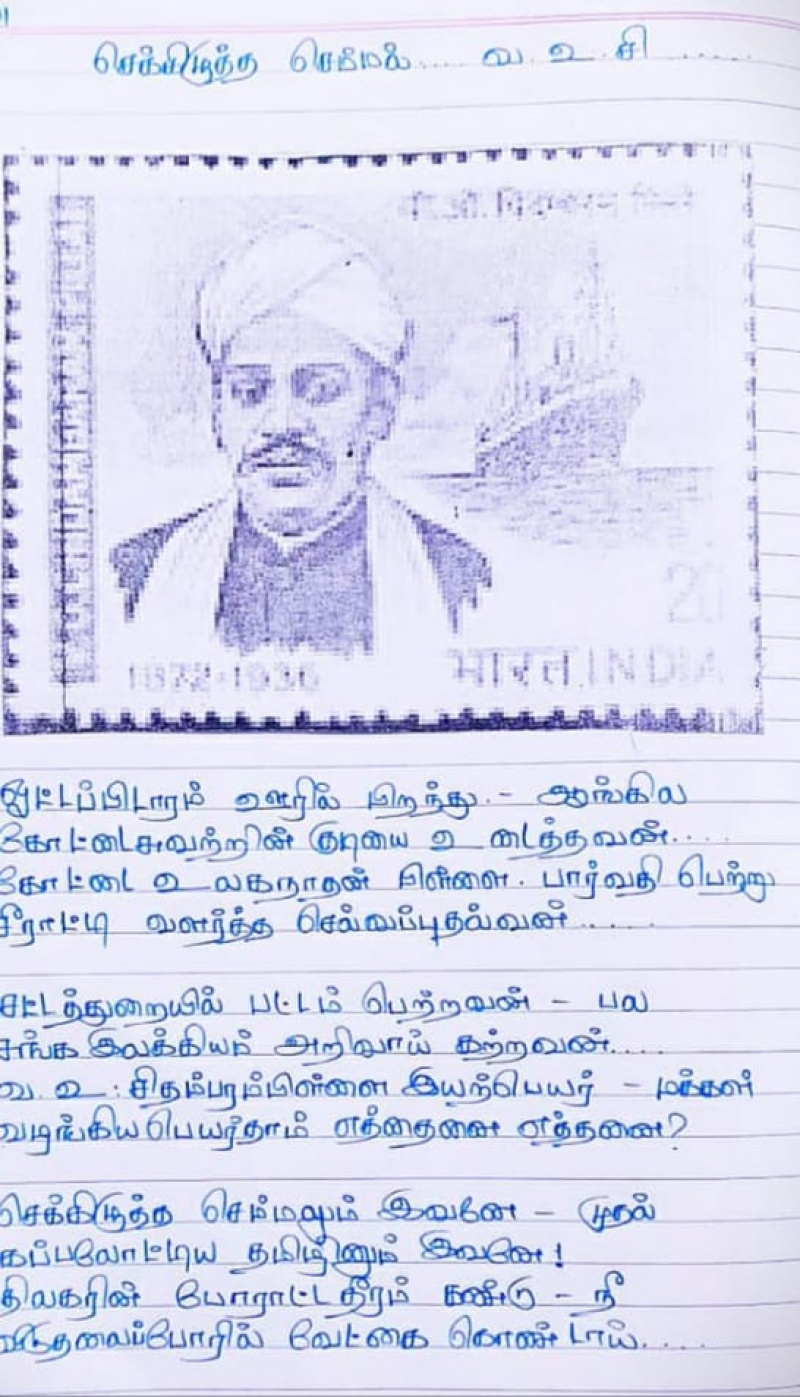 செக்கிழுத்த செம்மல்.... வ. உ. சி ......
1872-1936
भारत INDIA
20
ஓட்டப்பிடாரம் ஊரில் பிறந்து - ஆங்கில
கோட்டைசுவற்றின் குடியை உடைத்தவன்....
கோட்டை உலகநாதன் பிள்ளை. பார்வதி பெற்று
சீராட்டி வளர்த்த செல்வப்புதல்வன்.....
சட்டத்துறையில் பட்டம் பெற்றவன் - பல
சங்க இலக்கியம் அறிவாய் கற்றவன்....
வ. உ. சிதம்பரம்பிள்ளை இயற்பெயர் - மக்கள்
வழங்கிய பெயர்தாம் எத்தைனை எத்தனை?
செக்கிழுத்த செம்மலும் இவனே - முதல்
கப்பலோட்டிய தமிழினும் இவனே!
திலகரின் போராட்டதீரம் கண்டு - நீ
விடுதலைப்போரில் வேட்கை கொண்டாய்....